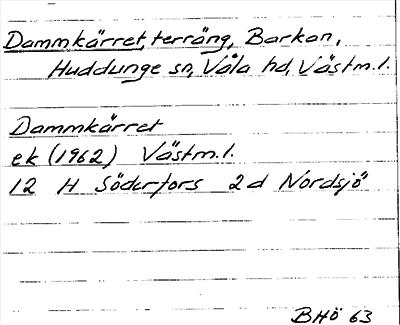 Dammkärret, terräng, Barkan,
Huddunge sn, Våla hd, Västm.l.
Dammkärret
ek (1962) Västm.l.
12 H Söderfors 2 d Nordsjö
BHÖ 63